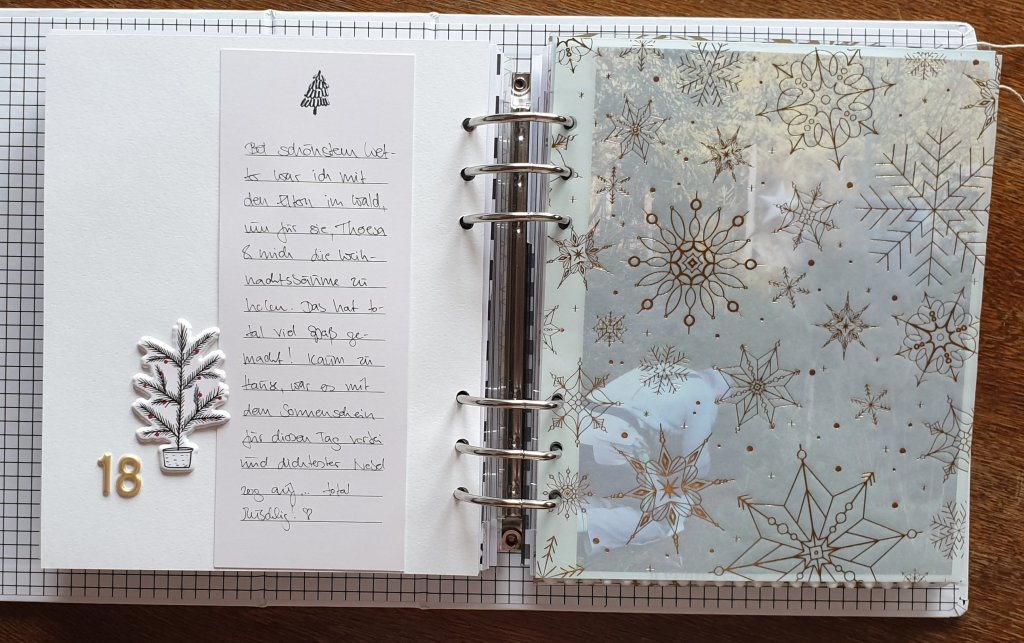 Bei schönstem Wet-
ter war ich mit
den Eltern im Wald,
um für sie, Theresa
& mich die Weih-
nachtsbäume zu
holen. Das hat to-
tal viel Spaß ge-
macht! Kaum zu
Hause, war es mit
dem Sonnenschein
für diesen Tag vorbei
und dichtester Nebel
zog auf... total
kuschlig! ♡
18